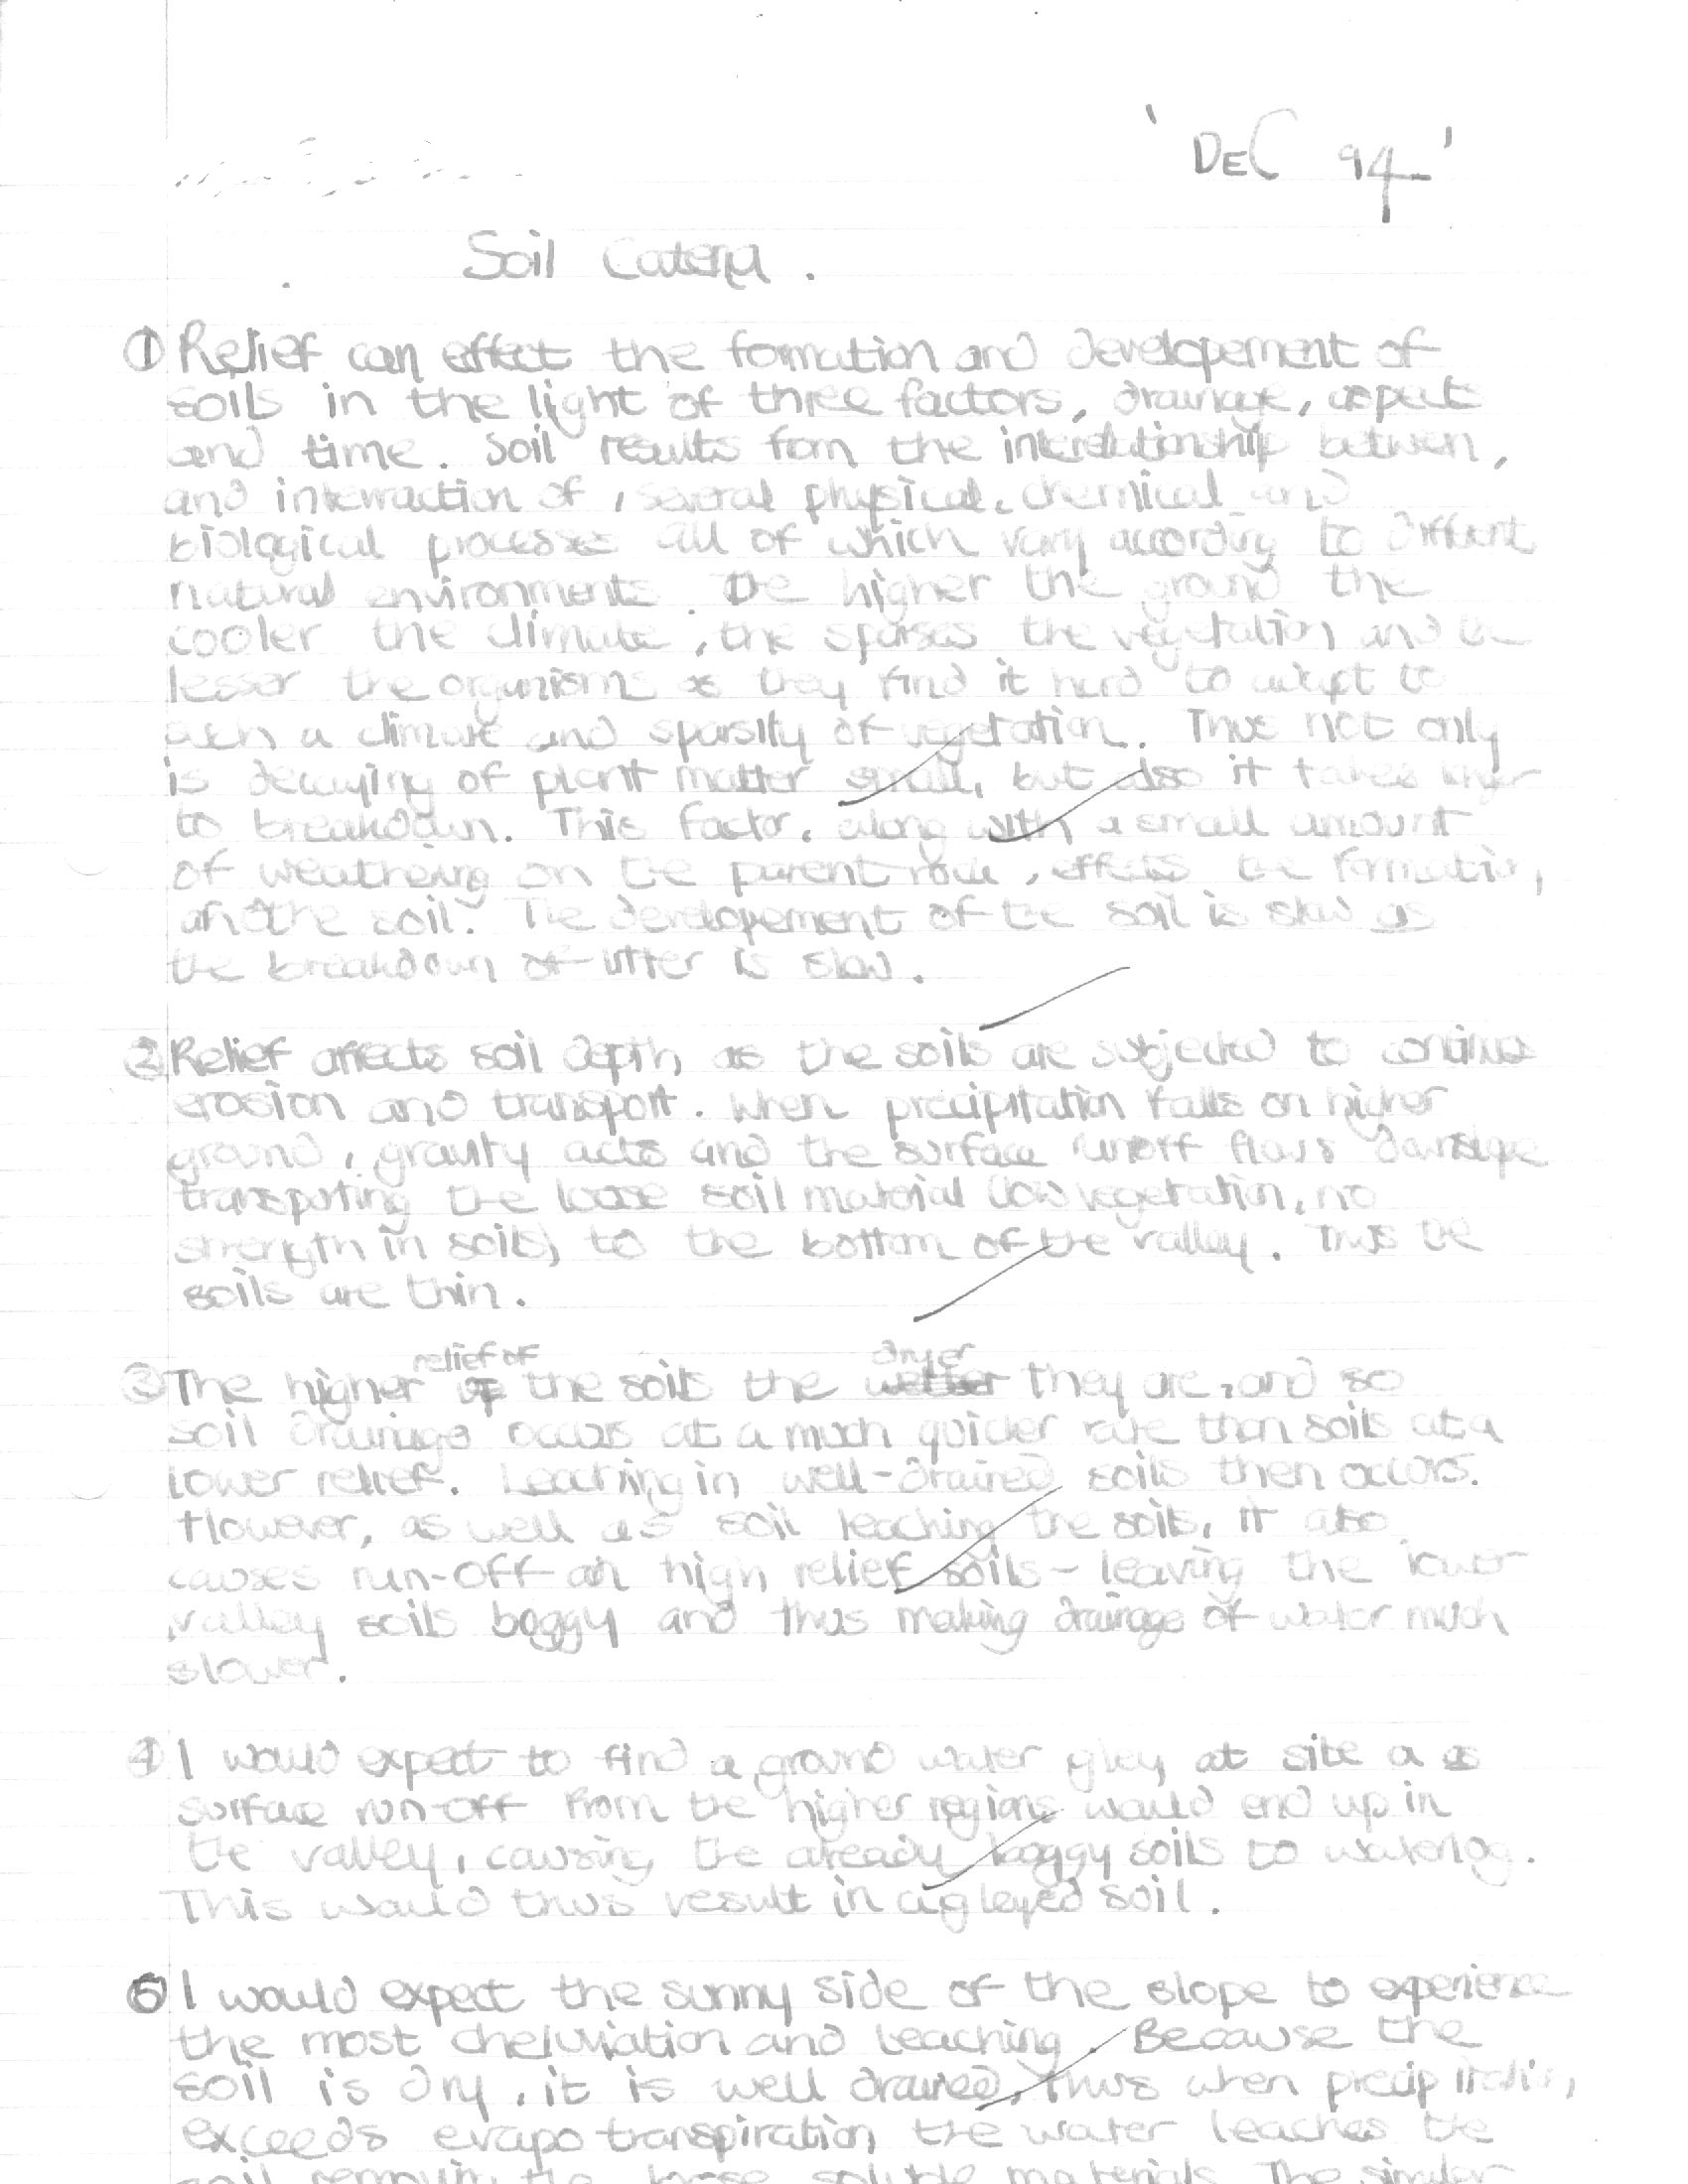 ' DEC 94 '
Soil Catena .
① Relief can effect the formation and developement of
soils in the light of three factors, drainage, aspect
and time. Soil results fom the interrelationship between,
and interraction of , several physical, chemical and
biological processes all of which vary according to different
natural environments. The higher the ground the
cooler the climate , the sparses the vegetation and the
lesser the organisms as they find it hard to adapt to
such a climate and sparsity of vegetation. Thus not only
is decaying of plant matter small, but also it takes longer
to breakdown. This factor, along with a small amount
of weathering on the parent rock , effects the formation,
of the soil. The developement of the soil is slow as
the breakdown of litter is slow.
② Relief affects soil depth, as the soils are subjected to continus
erosion and transport. When precipitation falls on higher
ground , gravity acts and the surface runoff flows downslope
transporting the loose soil material (low vegetation, no
strength in soils) to the bottom of the valley. Thus the
soils are thin.
relief of dryer
③ The higher up the soils the wetter they are, and so
soil drainage occurs at a much quicker rate than soils at a
lower relief. Leaching in well-drained soils then occurs.
However, as well as soil leaching the soils, it also
causes run-off on high relief soils - leaving the lower
valley soils boggy and thus making drainage of water much
slower.
④ I would expect to find a ground water gley at site a as
surface run-off from the higher regions would end up in
the valley, causing the already boggy soils to waterlog.
This would thus result in a gleyed soil.
⑤ I would expect the sunny side of the slope to experience
the most cheluviation and leaching. Because the
soil is dry, it is well drained, thus when precipitation,
exceeds evapotranspiration the water leaches the
soil removing the loose soluble materials. The